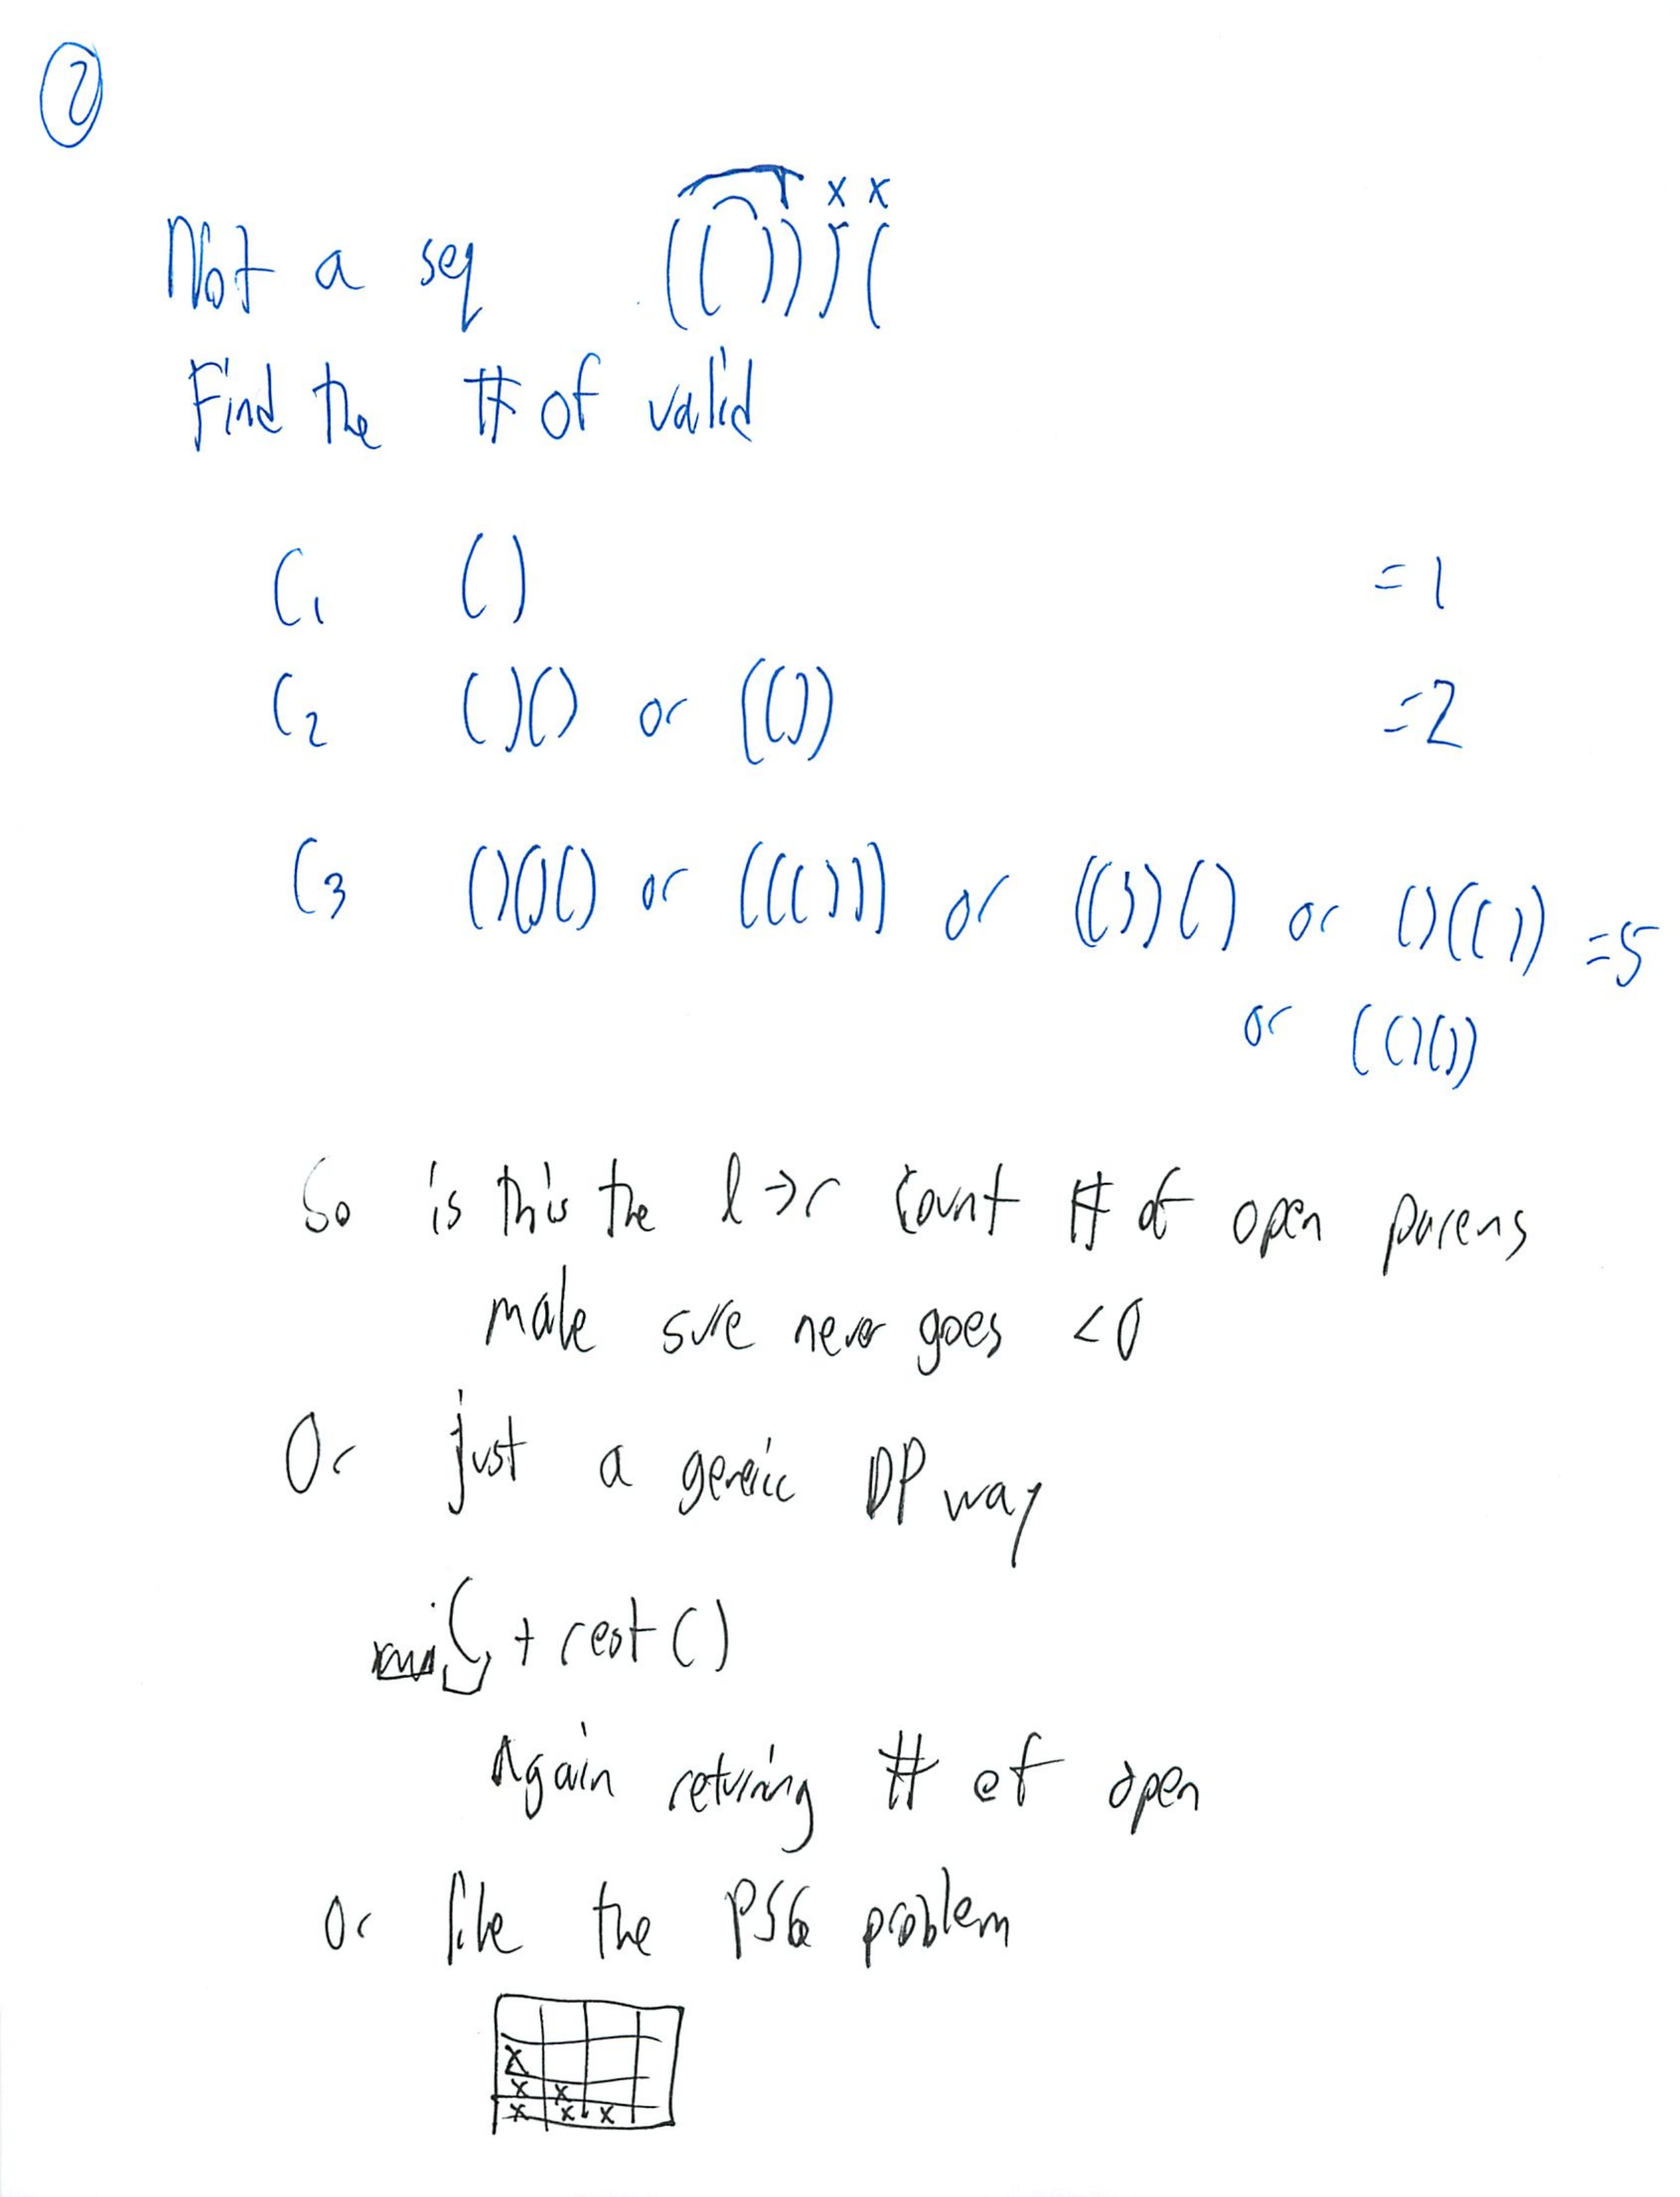 2
x x
Not a seq (()))(
Find the # of valid
C1 () =1
C2 ()() or (()) =2
C3 ()()() or ((())) or (())() or ()(()) =5
or (()())
So is this the l→r count # of open parens
make sure never goes <0
Or just a generic DP way
( + rest()
Again returing # of open
or like the PS6 problem
x
x x
x x x